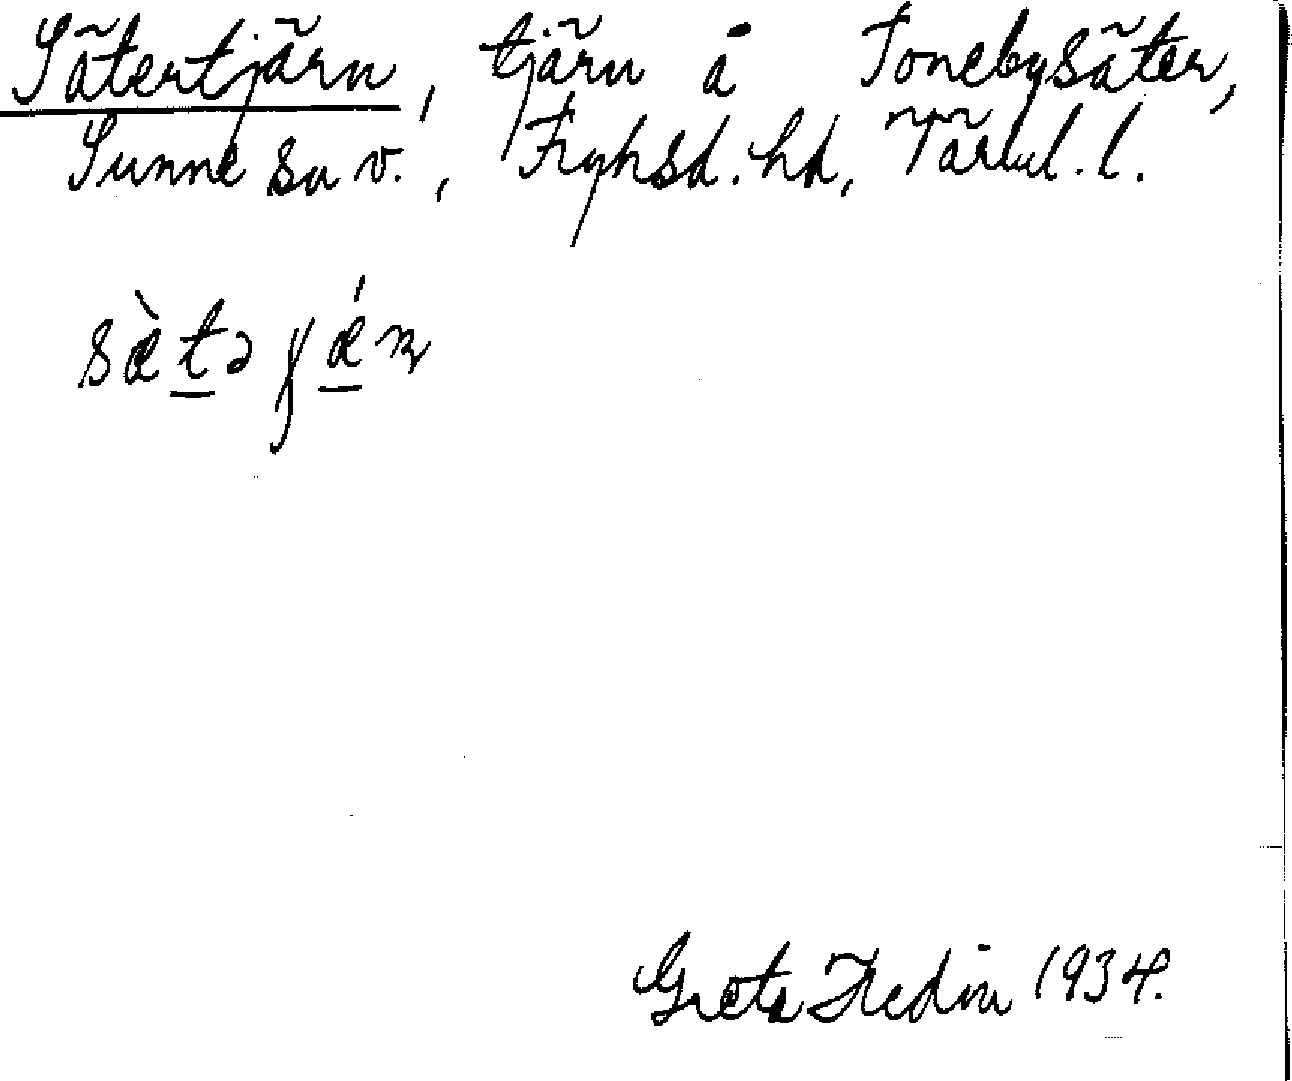 Sätertjärn, tjärn å Tonebysäter,
Sunne sn v., Fryksd. hd, Värml. l.
sæ̀tə ɟǽɳ
Greta Hedin 1934.